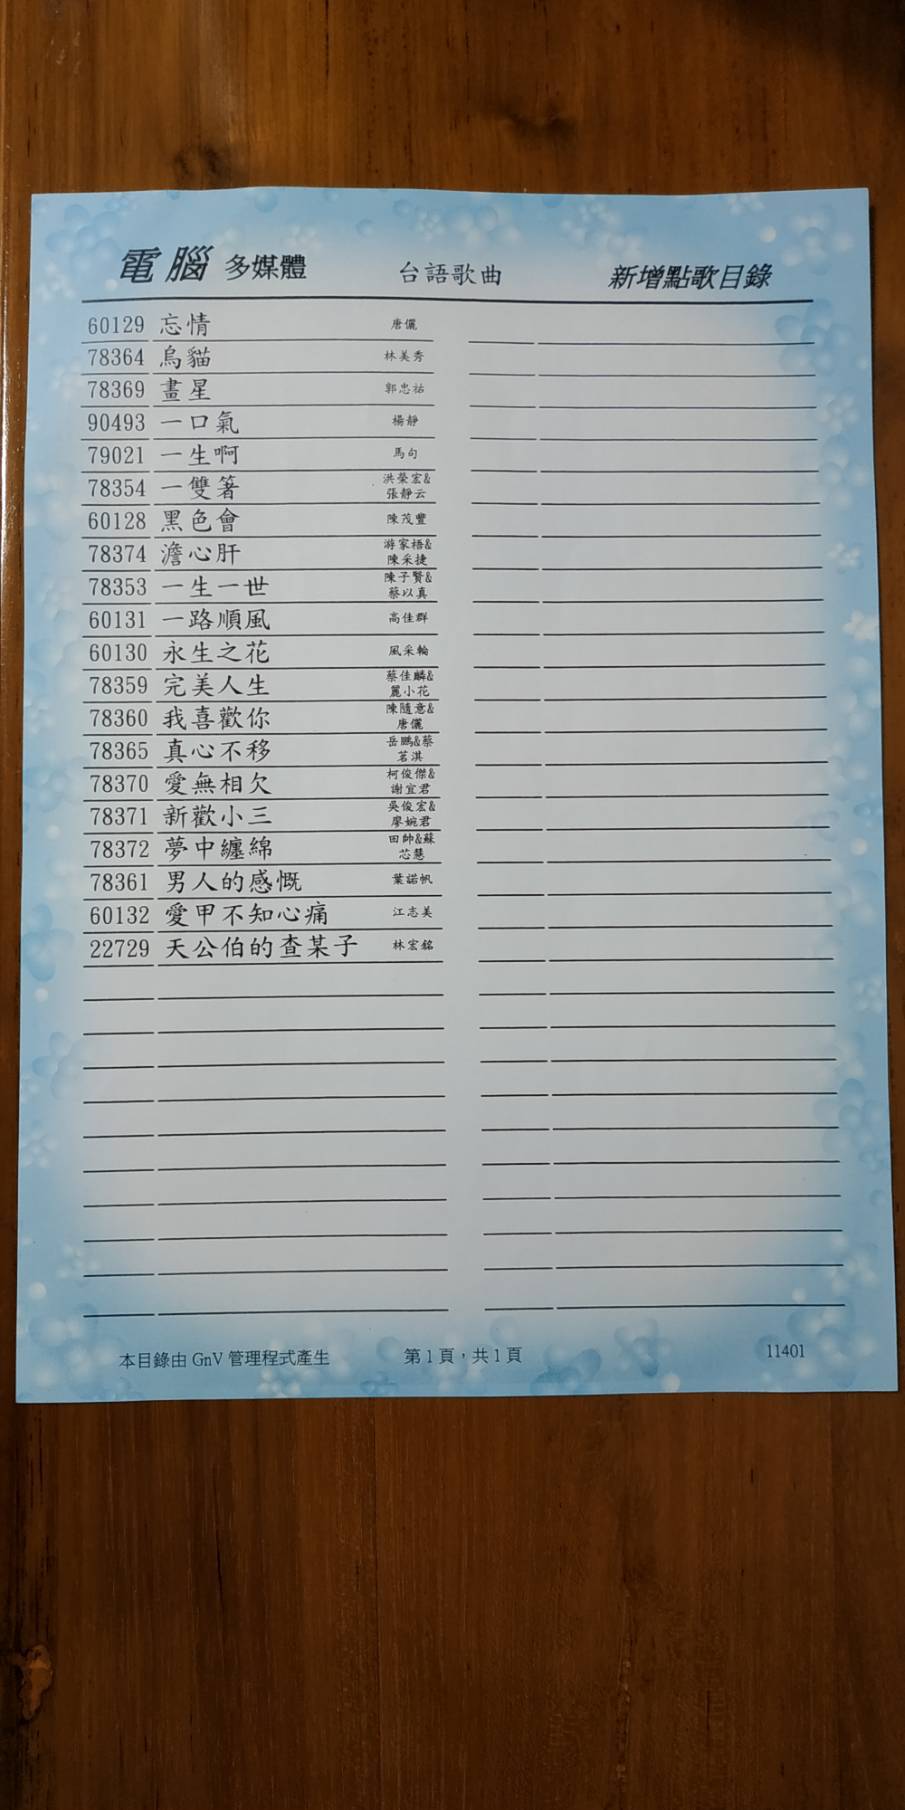 電腦 多媒體 台語歌曲 新增點歌目錄
60129 忘情 唐儷
78364 烏貓 林美秀
78369 畫星 郭忠祐
90493 一口氣 楊靜
79021 一生啊 馬句
78354 一雙箸 洪榮宏&張靜云
60128 黑色會 陳茂豐
78374 澹心肝 游家梧&陳采捷
78353 一生一世 陳子賢&蔡以真
60131 一路順風 高佳群
60130 永生之花 風采輪
78359 完美人生 蔡佳麟&麗小花
78360 我喜歡你 陳隨意&唐儷
78365 真心不移 岳鵬&蔡茗淇
78370 愛無相欠 柯俊傑&謝宜君
78371 新歡小三 吳俊宏&廖婉君
78372 夢中纏綿 田帥&蘇芯慧
78361 男人的感慨 葉諾帆
60132 愛甲不知心痛 江志美
22729 天公伯的查某子 林宏銘
本目錄由 GnV 管理程式產生 第 1 頁，共 1 頁 11401